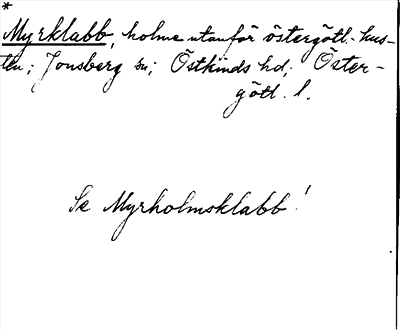 *
Myrklabb, holme utanför östergötl. kus-
ten; Jonsberg sn; Östkinds hd; Öster-
götl. l.
Se Myrholmsklabb!